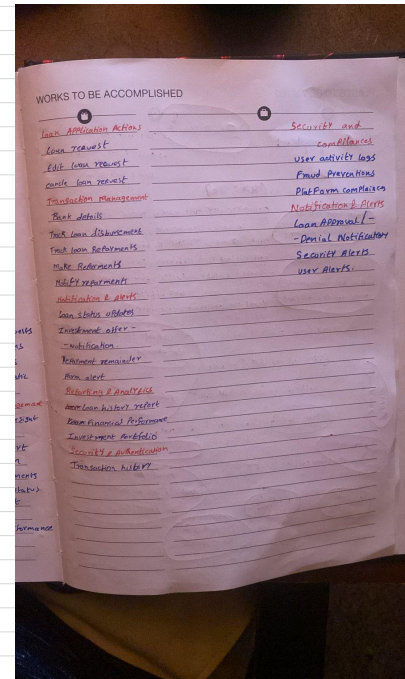 WORKS TO BE ACCOMPLISHED
Loan Application Actions
Loan request
Edit loan request
cancle loan request
Transaction Management
Bank details
Track Loan disbursement
Track loan Repayments
Make Repayments
Notify repayments
Notification & Alerts
Loan status updates
Investment offer -
- Notification
Repayment remainder
alert
Reporting & Analytics
Loan history report
Financial Performance
Investment Portfolio
Security & Authentication
Transaction history
Security and
compliances
user activity logs
Fraud Preventions
Platform
Notification & Alerts
Loan Approval / -
- Denial Notification
Security Alerts
user Alerts.
ments
status
formance